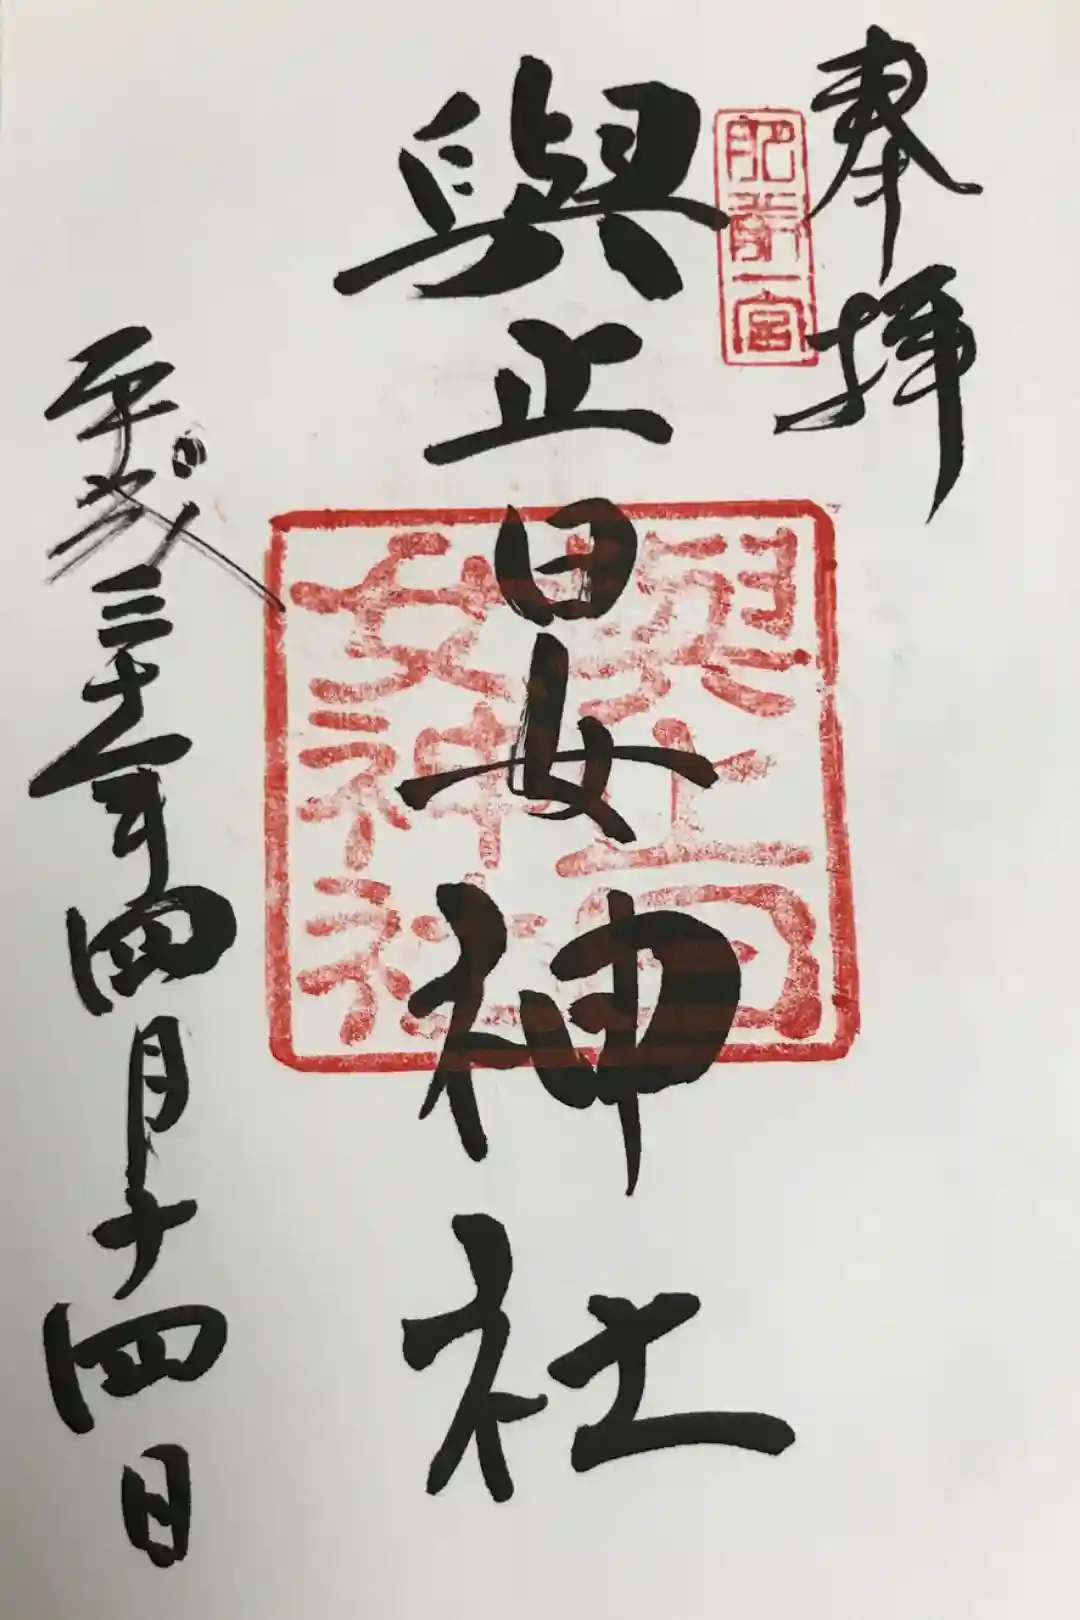 奉拝
肥前一宮
與止日女神社
與止日女神社
平成三十一年四月十四日